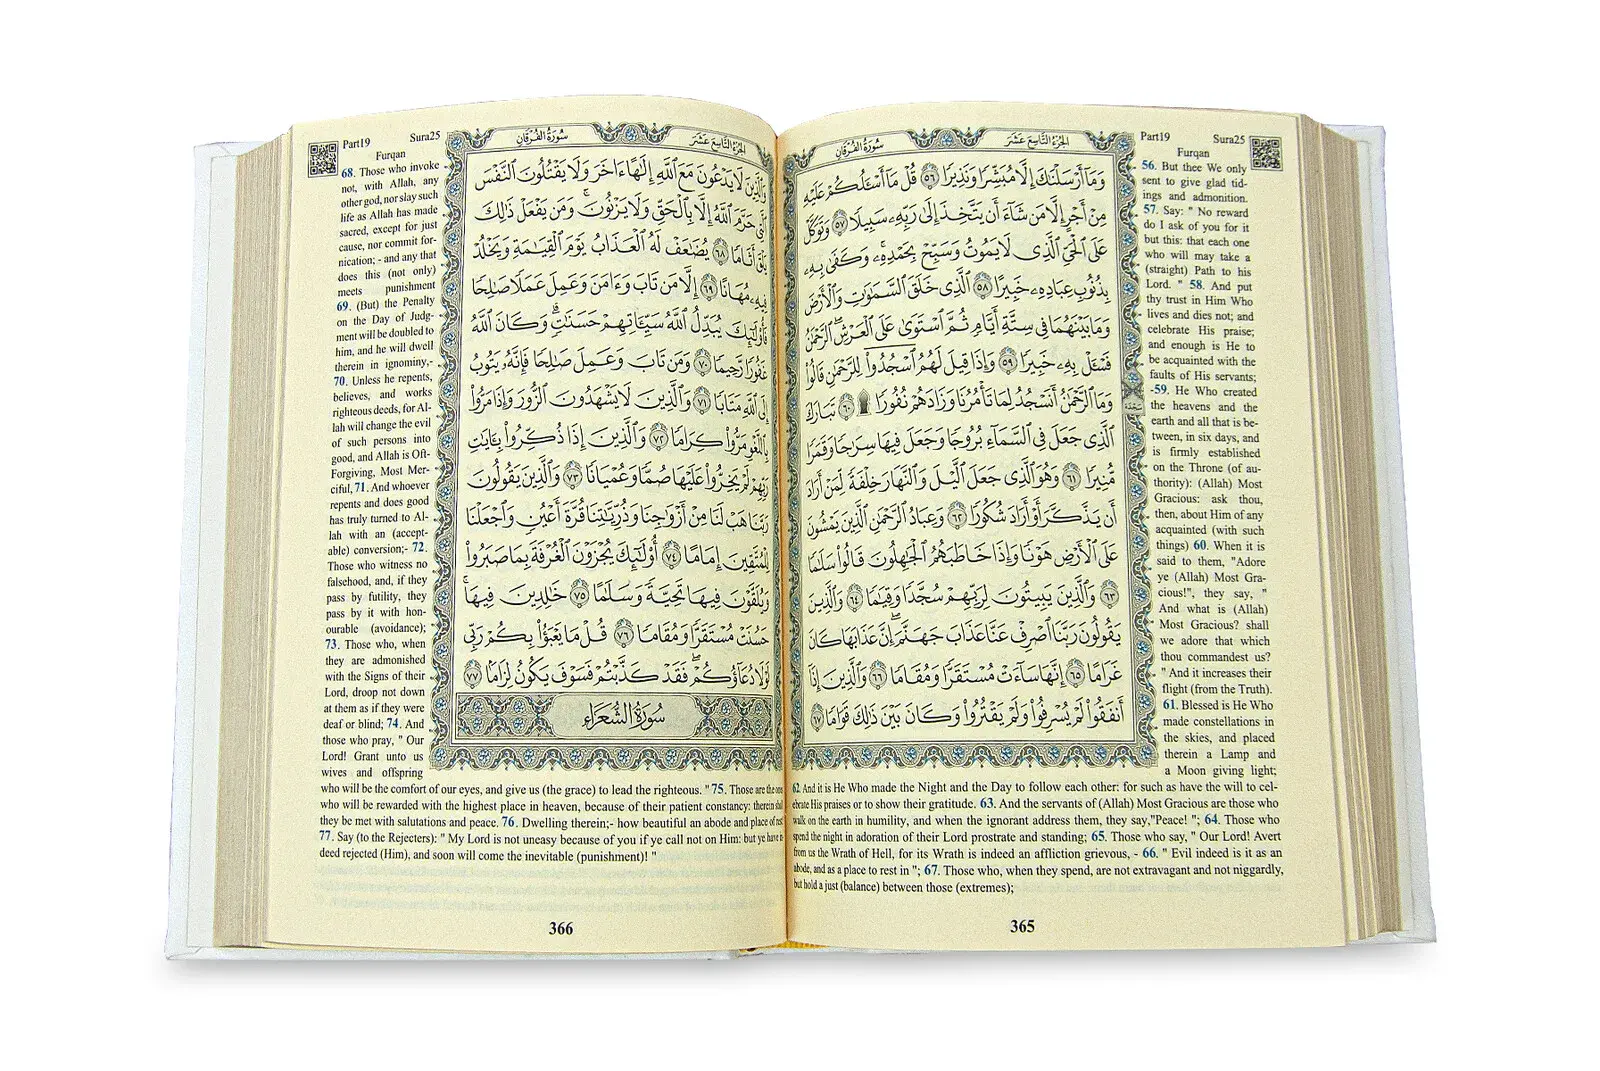 Part19 Sura25
Furqan
سُورَةُ الفُرْقَانِ الجُزْءُ التَّاسِعَ عَشَرَ
وَمَا أَرْسَلْنَٰكَ إِلَّا مُبَشِّرًا وَنَذِيرًا ٥٦ قُلْ مَا أَسْـَٔلُكُمْ عَلَيْهِ
مِنْ أَجْرٍ إِلَّا مَن شَاءَ أَن يَتَّخِذَ إِلَىٰ رَبِّهِۦ سَبِيلًا ٥٧ وَتَوَكَّلْ
عَلَى ٱلْحَيِّ ٱلَّذِي لَا يَمُوتُ وَسَبِّحْ بِحَمْدِهِۦ ۚ وَكَفَىٰ بِهِۦ
بِذُنُوبِ عِبَادِهِۦ خَبِيرًا ٥٨ ٱلَّذِي خَلَقَ ٱلسَّمَٰوَٰتِ وَٱلْأَرْضَ
وَمَا بَيْنَهُمَا فِي سِتَّةِ أَيَّامٍ ثُمَّ ٱسْتَوَىٰ عَلَى ٱلْعَرْشِ ۚ ٱلرَّحْمَٰنُ
فَسْـَٔلْ بِهِۦ خَبِيرًا ٥٩ وَإِذَا قِيلَ لَهُمُ ٱسْجُدُوا۟ لِلرَّحْمَٰنِ قَالُوا۟
وَمَا ٱلرَّحْمَٰنُ أَنَسْجُدُ لِمَا تَأْمُرُنَا وَزَادَهُمْ نُفُورًا ۩ ٦٠ تَبَارَكَ
ٱلَّذِي جَعَلَ فِي ٱلسَّمَاءِ بُرُوجًا وَجَعَلَ فِيهَا سِرَٰجًا وَقَمَرًا
مُّنِيرًا ٦١ وَهُوَ ٱلَّذِي جَعَلَ ٱلَّيْلَ وَٱلنَّهَارَ خِلْفَةً لِّمَنْ أَرَادَ
أَن يَذَّكَّرَ أَوْ أَرَادَ شُكُورًا ٦٢ وَعِبَادُ ٱلرَّحْمَٰنِ ٱلَّذِينَ يَمْشُونَ
عَلَى ٱلْأَرْضِ هَوْنًا وَإِذَا خَاطَبَهُمُ ٱلْجَٰهِلُونَ قَالُوا۟ سَلَٰمًا
٦٣ وَٱلَّذِينَ يَبِيتُونَ لِرَبِّهِمْ سُجَّدًا وَقِيَٰمًا ٦٤ وَٱلَّذِينَ
يَقُولُونَ رَبَّنَا ٱصْرِفْ عَنَّا عَذَابَ جَهَنَّمَ ۖ إِنَّ عَذَابَهَا كَانَ
غَرَامًا ٦٥ إِنَّهَا سَاءَتْ مُسْتَقَرًّا وَمُقَامًا ٦٦ وَٱلَّذِينَ إِذَا
أَنفَقُوا۟ لَمْ يُسْرِفُوا۟ وَلَمْ يَقْتُرُوا۟ وَكَانَ بَيْنَ ذَٰلِكَ قَوَامًا ٦٧
سَجْدَة
56. But thee We only
sent to give glad tid-
ings and admonition.
57. Say: " No reward
do I ask of you for it
but this: that each one
who will may take a
(straight) Path to his
Lord. " 58. And put
thy trust in Him Who
lives and dies not; and
celebrate His praise;
and enough is He to
be acquainted with the
faults of His servants;
-59. He Who created
the heavens and the
earth and all that is be-
tween, in six days, and
is firmly established
on the Throne (of au-
thority): (Allah) Most
Gracious: ask thou,
then, about Him of any
acquainted (with such
things) 60. When it is
said to them, "Adore
ye (Allah) Most Gra-
cious!", they say, "
And what is (Allah)
Most Gracious? shall
we adore that which
thou commandest us?
" And it increases their
flight (from the Truth).
61. Blessed is He Who
made constellations in
the skies, and placed
therein a Lamp and
a Moon giving light;
62. And it is He Who made the Night and the Day to follow each other: for such as have the will to cel-
ebrate His praises or to show their gratitude. 63. And the servants of (Allah) Most Gracious are those who
walk on the earth in humility, and when the ignorant address them, they say,"Peace! "; 64. Those who
spend the night in adoration of their Lord prostrate and standing; 65. Those who say, " Our Lord! Avert
from us the Wrath of Hell, for its Wrath is indeed an affliction grievous, - 66. " Evil indeed is it as an
abode, and as a place to rest in "; 67. Those who, when they spend, are not extravagant and not niggardly,
but hold a just (balance) between those (extremes);
365
Part19 Sura25
Furqan
سُورَةُ الفُرْقَانِ الجُزْءُ التَّاسِعَ عَشَرَ
وَٱلَّذِينَ لَا يَدْعُونَ مَعَ ٱللَّهِ إِلَٰهًا ءَاخَرَ وَلَا يَقْتُلُونَ ٱلنَّفْسَ
ٱلَّتِي حَرَّمَ ٱللَّهُ إِلَّا بِٱلْحَقِّ وَلَا يَزْنُونَ ۚ وَمَن يَفْعَلْ ذَٰلِكَ
يَلْقَ أَثَامًا ٦٨ يُضَٰعَفْ لَهُ ٱلْعَذَابُ يَوْمَ ٱلْقِيَٰمَةِ وَيَخْلُدْ
فِيهِۦ مُهَانًا ٦٩ إِلَّا مَن تَابَ وَءَامَنَ وَعَمِلَ عَمَلًا صَٰلِحًا
فَأُو۟لَٰئِكَ يُبَدِّلُ ٱللَّهُ سَيِّـَٔاتِهِمْ حَسَنَٰتٍ ۗ وَكَانَ ٱللَّهُ
غَفُورًا رَّحِيمًا ٧٠ وَمَن تَابَ وَعَمِلَ صَٰلِحًا فَإِنَّهُۥ يَتُوبُ
إِلَى ٱللَّهِ مَتَابًا ٧١ وَٱلَّذِينَ لَا يَشْهَدُونَ ٱلزُّورَ وَإِذَا مَرُّوا۟
بِٱللَّغْوِ مَرُّوا۟ كِرَامًا ٧٢ وَٱلَّذِينَ إِذَا ذُكِّرُوا۟ بِـَٔايَٰتِ
رَبِّهِمْ لَمْ يَخِرُّوا۟ عَلَيْهَا صُمًّا وَعُمْيَانًا ٧٣ وَٱلَّذِينَ يَقُولُونَ
رَبَّنَا هَبْ لَنَا مِنْ أَزْوَٰجِنَا وَذُرِّيَّٰتِنَا قُرَّةَ أَعْيُنٍ وَٱجْعَلْنَا
لِلْمُتَّقِينَ إِمَامًا ٧٤ أُو۟لَٰئِكَ يُجْزَوْنَ ٱلْغُرْفَةَ بِمَا صَبَرُوا۟
وَيُلَقَّوْنَ فِيهَا تَحِيَّةً وَسَلَٰمًا ٧٥ خَٰلِدِينَ فِيهَا ۚ
حَسُنَتْ مُسْتَقَرًّا وَمُقَامًا ٧٦ قُلْ مَا يَعْبَؤُا۟ بِكُمْ رَبِّي
لَوْلَا دُعَاؤُكُمْ ۖ فَقَدْ كَذَّبْتُمْ فَسَوْفَ يَكُونُ لِزَامًا ٧٧
سُورَةُ الشُّعَرَاءِ
68. Those who invoke
not, with Allah, any
other god, nor slay such
life as Allah has made
sacred, except for just
cause, nor commit for-
nication; - and any that
does this (not only)
meets punishment
69. (But) the Penalty
on the Day of Judg-
ment will be doubled to
him, and he will dwell
therein in ignominy,-
70. Unless he repents,
believes, and works
righteous deeds, for Al-
lah will change the evil
of such persons into
good, and Allah is Oft-
Forgiving, Most Mer-
ciful, 71. And whoever
repents and does good
has truly turned to Al-
lah with an (accept-
able) conversion;- 72.
Those who witness no
falsehood, and, if they
pass by futility, they
pass by it with hon-
ourable (avoidance);
73. Those who, when
they are admonished
with the Signs of their
Lord, droop not down
at them as if they were
deaf or blind; 74. And
those who pray, " Our
Lord! Grant unto us
wives and offspring
who will be the comfort of our eyes, and give us (the grace) to lead the righteous. "75. Those are the one
who will be rewarded with the highest place in heaven, because of their patient constancy: therein shal
they be met with salutations and peace. 76. Dwelling therein;- how beautiful an abode and place of rest
77. Say (to the Rejecters): " My Lord is not uneasy because of you if ye call not on Him: but ye have in
deed rejected (Him), and soon will come the inevitable (punishment)! "
366